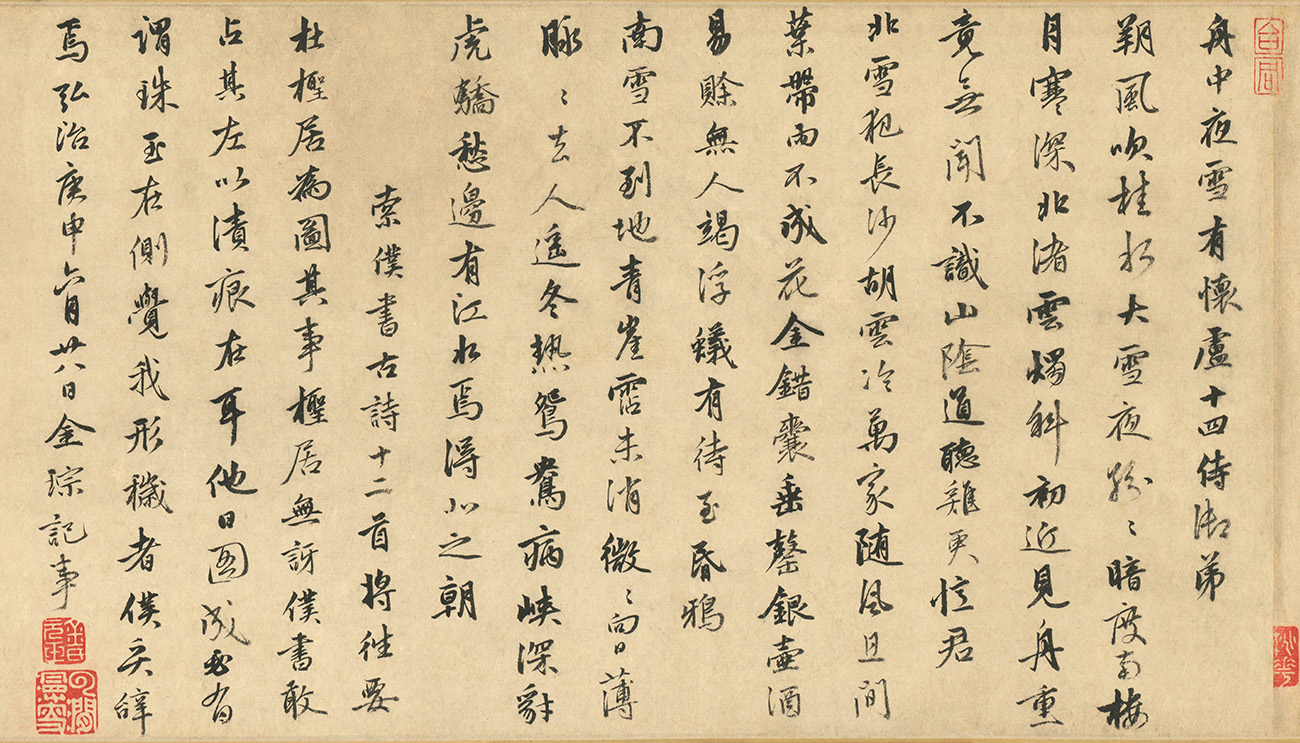 舟中夜雪有懷盧十四侍御弟
朔風吹桂水大雪夜紛〻暗度南樓
月寒深北渚雲燭斜初近見舟重
竟無聞不識山陰道聽雞更憶君
北雪犯長沙胡雲冷萬家随風且間
葉帶雨不成花金錯囊垂罄銀壺酒
易賒無人竭浮蟻有待至昏鴉
南雪不到地青崖霑未消微〻向日薄
脉〻去人遥冬熱鴛鴦病峽深豺
虎驕愁邊有江水焉得北之朝
索僕書古詩十二首將往要
杜檉居為圖其事檉居無訝僕書敢
占其左以漬痕在耳他日圖成必有
謂珠玉在側覺我形穢者僕奚辞
焉弘治庚申六月廿八日金琮記事